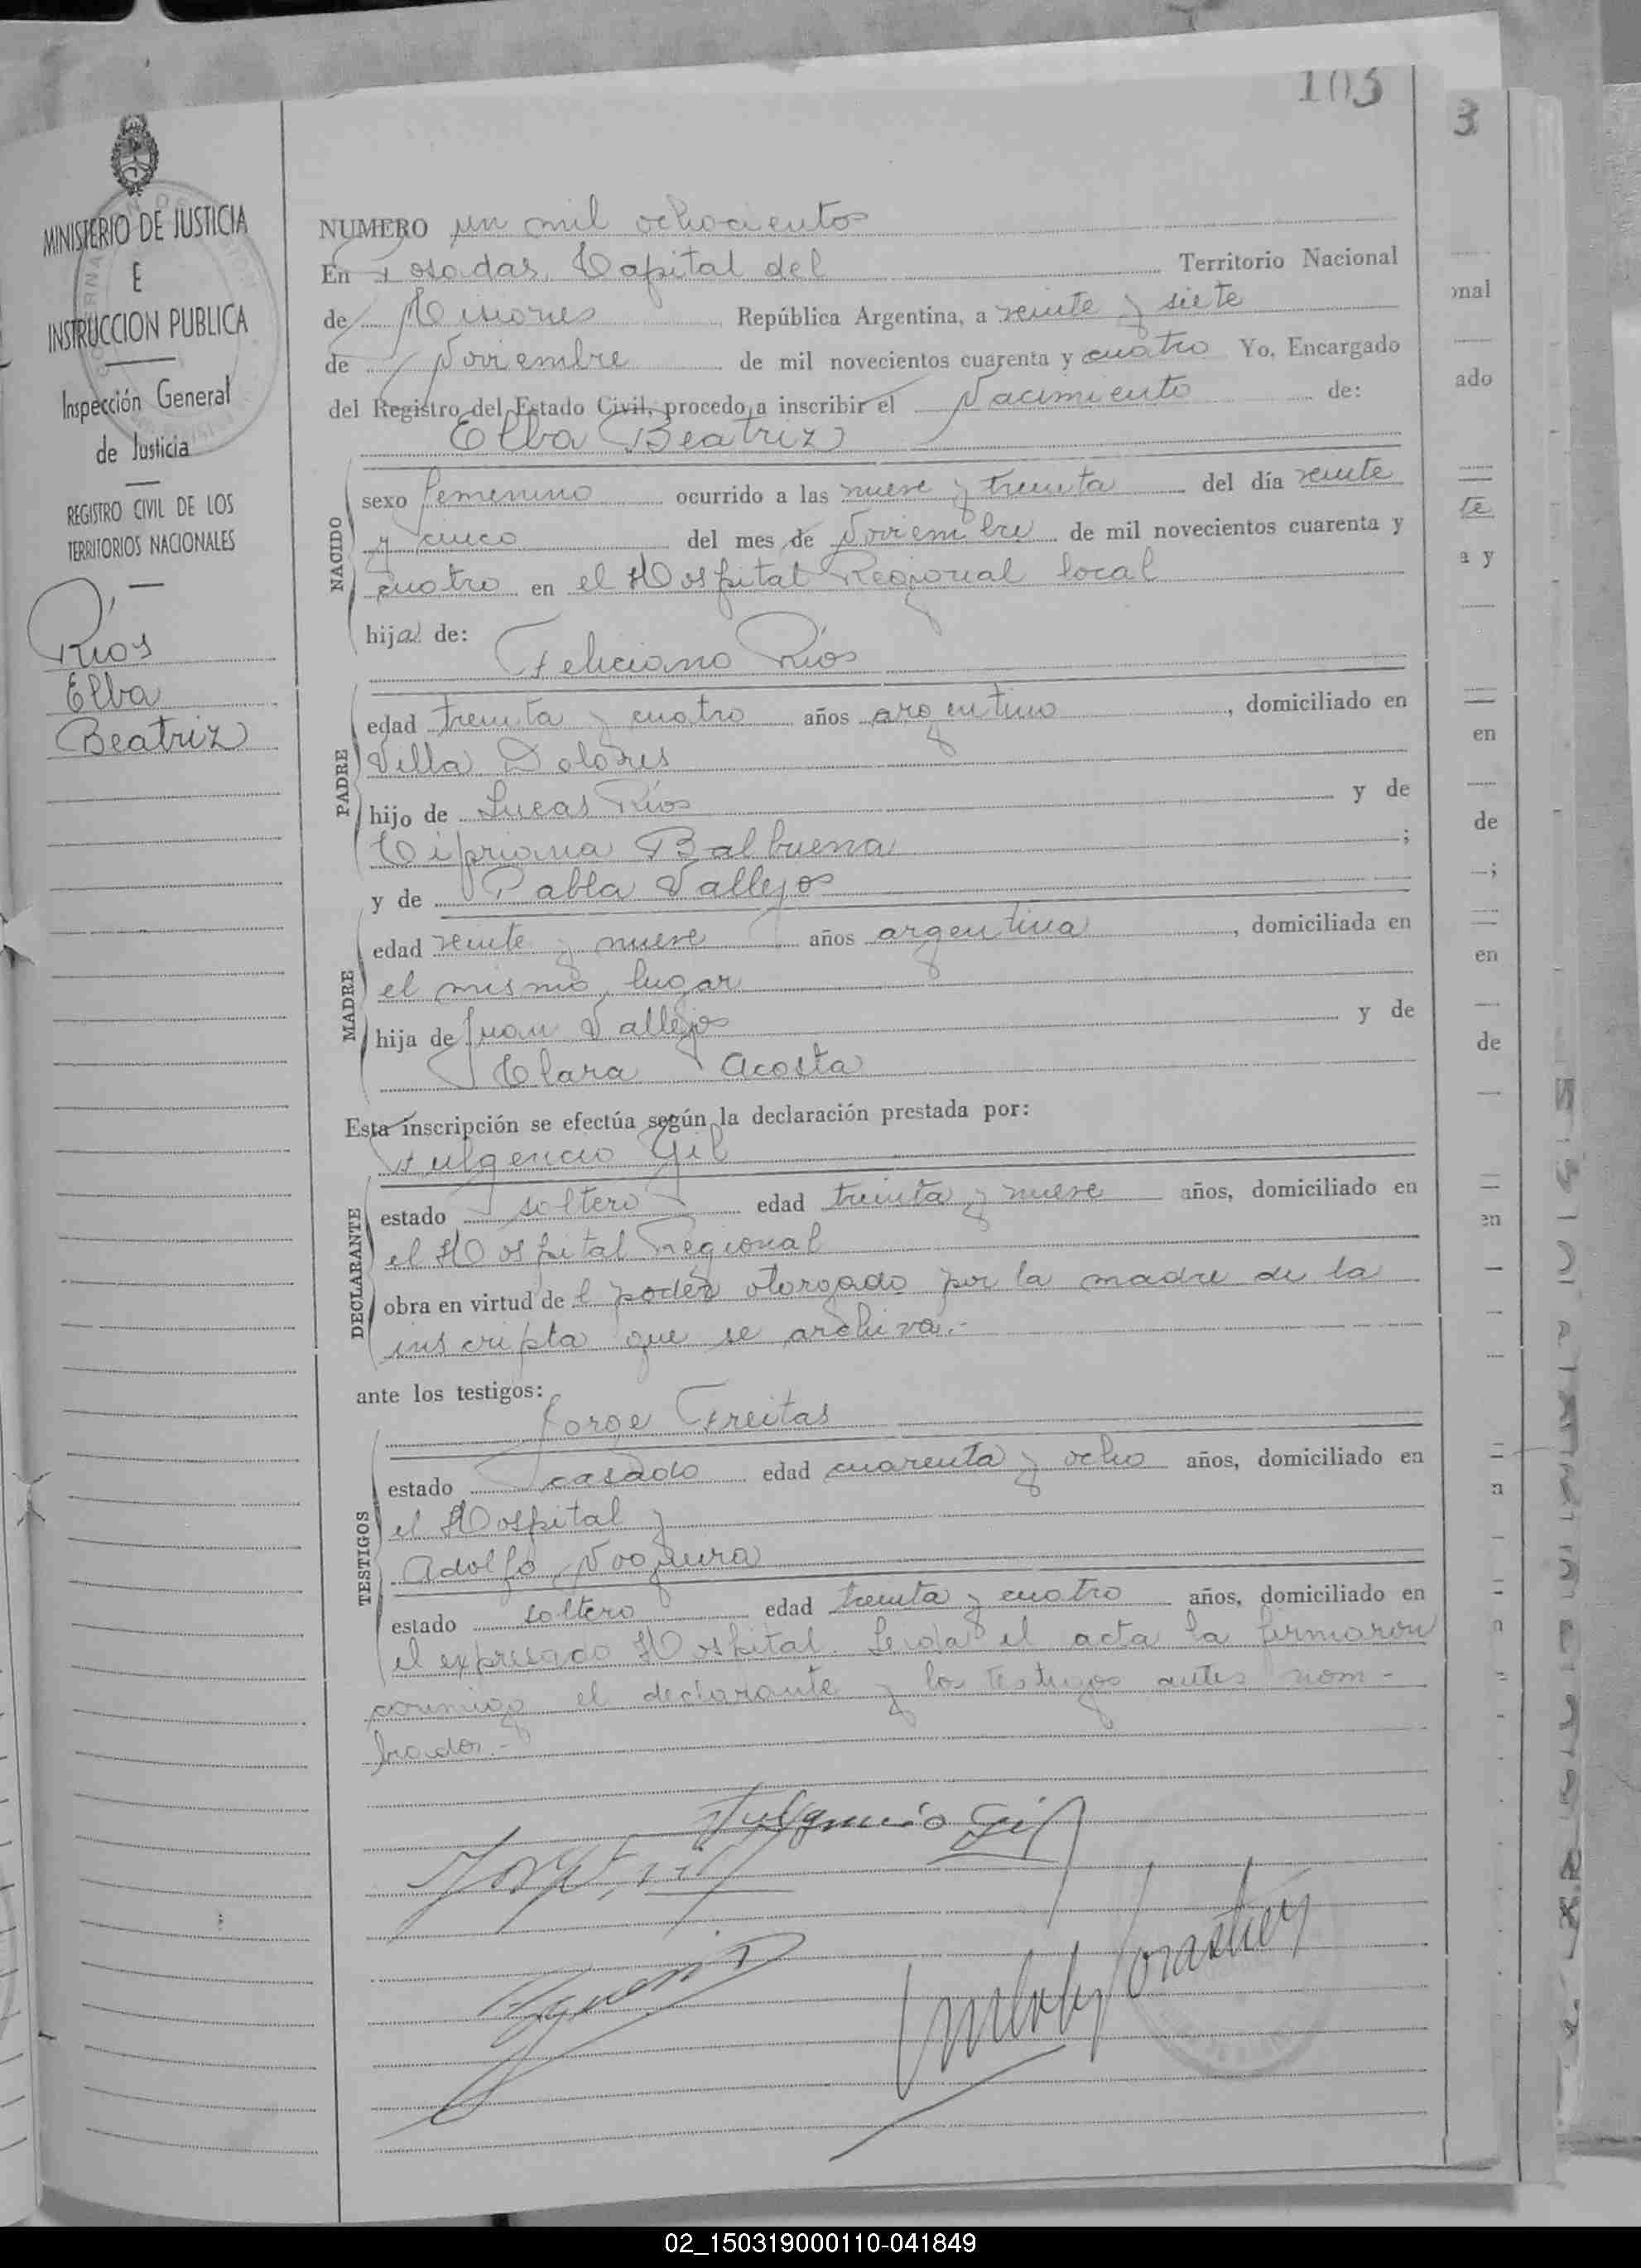 103
3
MINISTERIO DE JUSTICIA
E
INSTRUCCION PUBLICA
Inspección General
de Justicia
REGISTRO CIVIL DE LOS
TERRITORIOS NACIONALES
Ríos
Elba
Beatriz
NUMERO un mil ochocientos
En Posadas, Capital del Territorio Nacional
de Misiones República Argentina, a veinte y siete
de Noviembre de mil novecientos cuarenta y cuatro Yo, Encargado
del Registro del Estado Civil, procedo a inscribir el Nacimiento de:
Elba Beatriz
NACIDO
sexo femenino ocurrido a las nueve y treinta del día veinte
y cinco del mes de Noviembre de mil novecientos cuarenta y
cuatro en el Hospital Regional local
hija de:
Feliciano Ríos
PADRE
edad treinta y cuatro años argentino, domiciliado en
Villa Dolores
hijo de Lucas Ríos y de
Cipriana Balbuena;
y de Pabla Vallejos
MADRE
edad veinte y nueve años argentina, domiciliada en
el mismo lugar
hija de Juan Vallejos y de
Clara Acosta
Esta inscripción se efectúa según la declaración prestada por:
Fulgencio Gil
DECLARANTE
estado soltero edad treinta y nueve años, domiciliado en
el Hospital Regional
obra en virtud del poder otorgado por la madre de la
inscripta que se archiva.-
ante los testigos:
Jorge Freitas
TESTIGOS
estado casado edad cuarenta y ocho años, domiciliado en
el Hospital y
Adolfo Noguera
estado soltero edad treinta y cuatro años, domiciliado en
el expresado Hospital. Leida el acta la firmaron
conmigo el declarante y los testigos antes nom-
brados.-
Fulgencio Gil
02_150319000110-041849